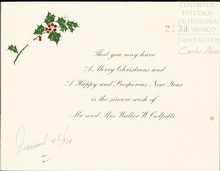 CENTRO DE
ESTUDIOS
DE HISTORIA
DE MEXICO
FUNDACIÓN
That you may have
A Merry Christmas and
A Happy and Prosperous New Year
is the sincere wish of
Mr and Mrs Walter W Colpitts